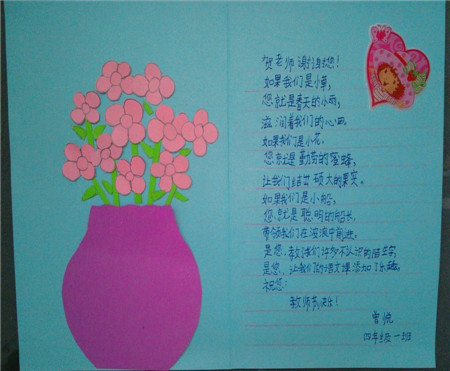 贺老师谢谢您!
如果我们是小草,
您就是春天的小雨,
滋润着我们的心田。
如果我们是小花,
您就是勤劳的蜜蜂,
让我们结出硕大的果实。
如果我们是小船,
您就是聪明的船长,
带领我们在波浪中前进。
是您,教我们许多不认识的生字,
是您,让我们的语文课添加了乐趣。
祝您:
教师节快乐!
雪悦
四年级一班